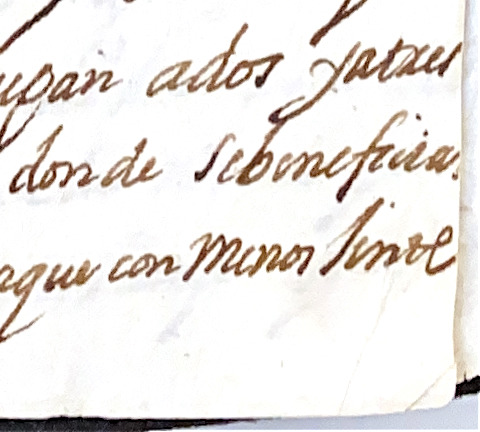 ugan ados yatres
donde sebeneficia
nque con menos